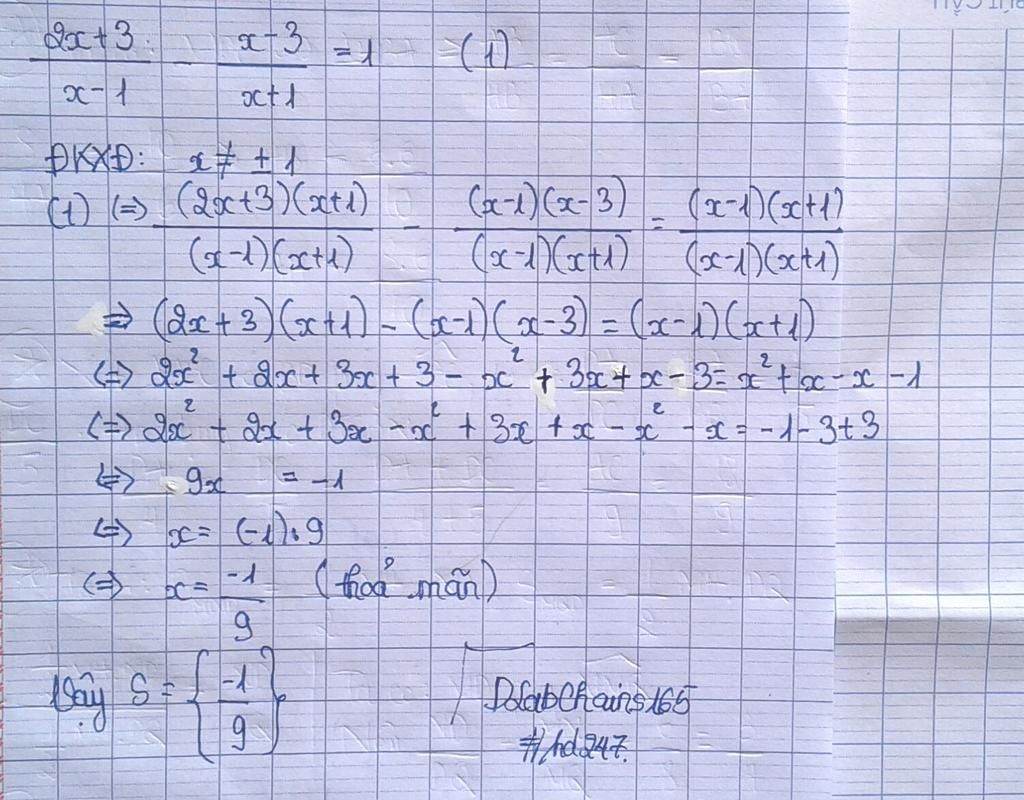 (2x+3)/(x-1) - (x-3)/(x+1) = 1 (1)
ĐKXĐ: x ≠ ± 1
(1) (=) ((2x+3)(x+1))/((x-1)(x+1)) - ((x-1)(x-3))/((x-1)(x+1)) = ((x-1)(x+1))/((x-1)(x+1))
⇒ (2x+3)(x+1) - (x-1)(x-3) = (x-1)(x+1)
(=) 2x² + 2x + 3x + 3 - x² + 3x + x - 3 = x² + x - x - 1
(=) 2x² + 2x + 3x - x² + 3x + x - x² - x = -1 - 3 + 3
(=) 9x = -1
(=) x = (-1) : 9
(=) x = -1/9 (thoả mãn)
Vậy S = {-1/9}
#hd247.